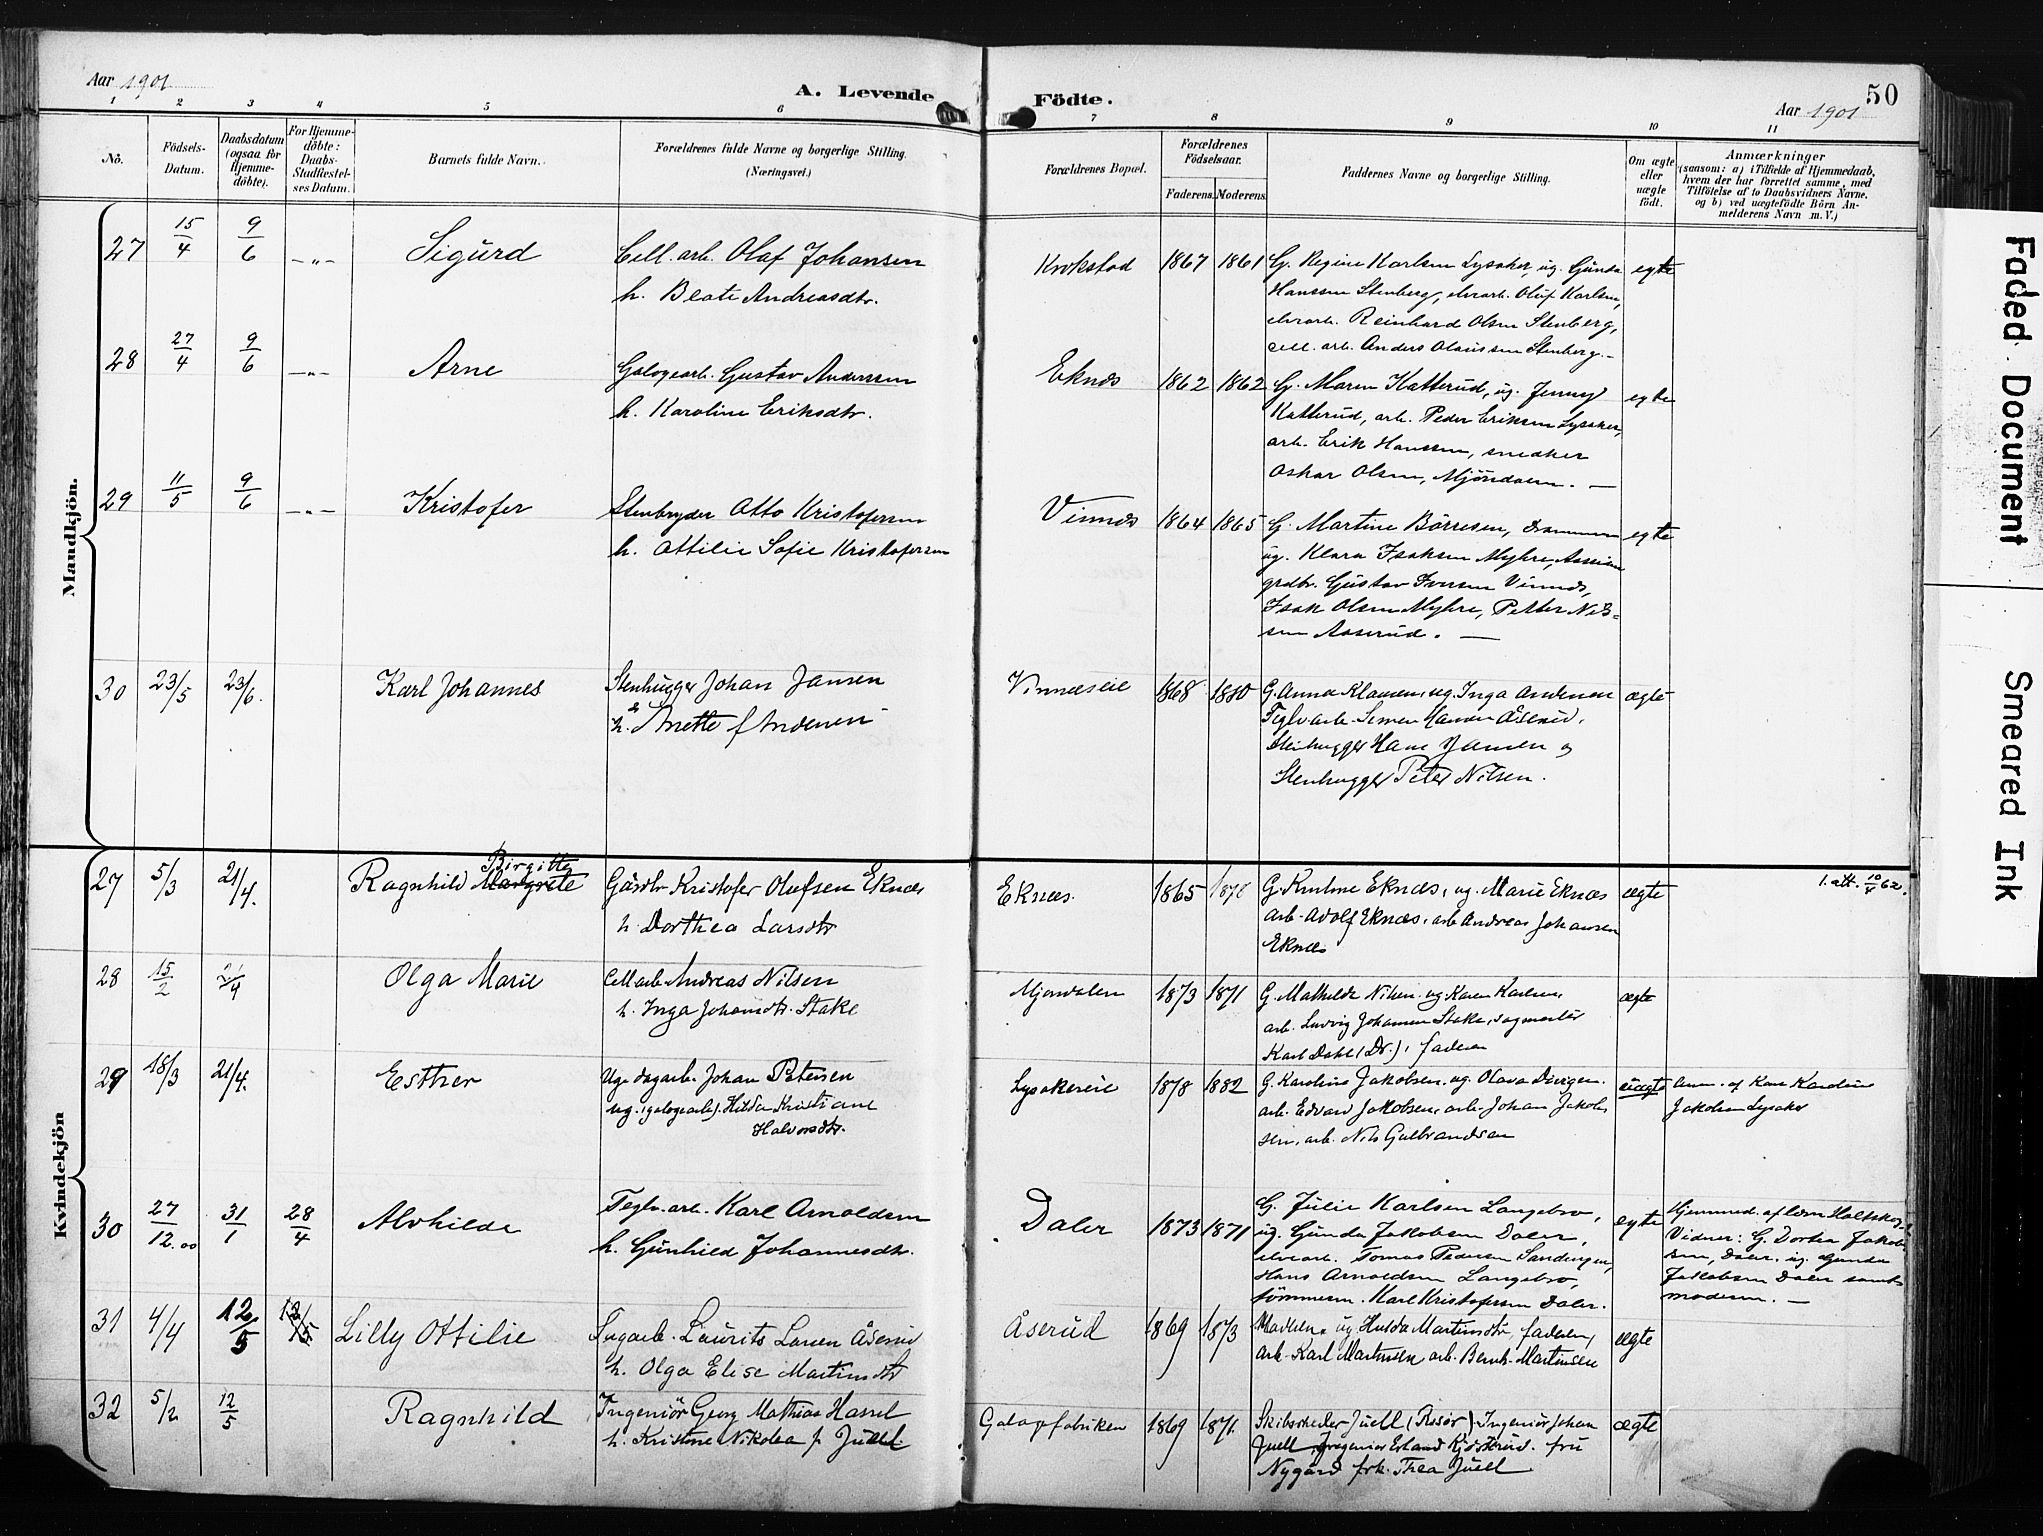 Aar 1901
A. Levende
Födte.
Aar 1901
50
1 2 3 4 5 6 7 8 9 10 11
No.
Födsels-
Datum.
Daabsdatum
(ogsaa for
Hjemme-
döbte).
For Hjemme-
döbte:
Daabs-
Stadfæstel-
ses Datum.
Barnets fulde Navn.
Forældrenes fulde Navne og borgerlige Stilling.
(Næringsvei.)
Forældrenes Bopæl.
Forældrenes
Födselsaar.
Faderens. Moderens.
Faddernes Navne og borgerlige Stilling.
Om ægte
eller
uægte
födt.
Anmærkninger
(saasom: a) i Tilfælde af Hjemmedaab,
hvem der har forrettet samme, med
Tilföielse af to Daabsvidners Navne,
og b) ved uægtefödte Börn An-
melderens Navn m. V.)
Mandkjön.
27 15/4 9/6 -"- Sigurd Cell. arb. Olaf Johansen
h. Beate Andreasdtr.
Krokstad 1867 1861 G. Regine Karlsen Lysaker, ug. Gunda
Hanssen Stenberg, elvearb. Oluf Karlsen,
elvearb. Reinhard Olsen Stenberg,
cell. arb. Anders Olaussen Stenberg. -
egte
28 27/4 9/6 -"- Arne Galogearb. Gustav Anderssen
h. Karoline Eriksdtr.
Eknes 1862 1862 G. Maren Katterud, ug. Jenny
Katterud, arb. Peder Eriksen Lysaker,
arb. Erik Hanssen, snedker
Oskar Olsen, Mjöndalen. -
egte
29 11/5 9/6 -"- Kristofer Stenbryder Otto Kristofersen
h. Ottilie Sofie Kristofersen
Vinnes 1864 1865 G. Martine Börresen, Drammen
ug. Klara Isaksen Myhre,
grdbr. Gustav Iversen Vinnes,
Isak Olsen Myhre, Petter Nils-
sen Aaserud. -
egte
30 23/5 23/6. Karl Johannes Stenhugger Johan Jansen
h. Anette f Andersen
Vinneseie 1868 1880 G. Anna Klausen, ug. Inga Andersen
Teglv arb. Simen Hansen Åserud.
Stenhugger Hans Jansen og
Stenhugger Peter Nilsen.
ægte
Kvindekjön
27 5/3 21/4. Ragnhild Margrete Birgitte Gårdbr Kristofer Olufsen Eknæs
h. Dorthea Larsdtr
Eknæs. 1865 1878 G. Karline Eknæs, ug. Marie Eknæs
arb. Adolf Eknæs, arb Andreas Johansen
Eknæs
ægte 1. att. 10/4 62.
28 15/2 21/4 Olga Marie Cell arb Andreas Nilsen
h. Inga Johansdtr. Stake
Mjöndalen 1873 1871 G. Mathilde Nilsen, ug Karen Karlsen,
arb. Ludvig Johansen Stake, sagmester
Karl Dahl (Dr.), faderen
ægte
29 18/3 21/4. Esther Ug. dagarb. Johan Petersen
ug. (galogearb). Hilda Kristiane
Halvorsdtr.
Lysakereie 1878 1882 G. Karoline Jakobsen, ug. Olava
arb. Edvard Jakobsen, arb. Johan Jakob-
sen, arb. Nils Gulbrandsen
uægte Anm. af Kone Karoline
Jakobsen Lysaker
30 27/12.00 31/1 28/4 Alvhilde Teglv. arb. Karl Arnoldsen
h. Gunhild Johannesdtr.
Daler 1873 1871 G. Julie Karlsen Langebro,
ug. Gunda Jakobsen Daler,
elvearb. Tomas Pedersen Sandengen,
Hans Arnoldsen Langebro,
tömmerm. Karl Kristofersen Daler.
egte Hjemmed. af
Vidner: G. Dortea Jakob-
sen, Daler, ug. Gunda
Jakobsen Daler samt
moderen. -
31 4/4 12/5 12/5 Lilly Ottilie Laurits Larsen Åserud
h. Olga Elise Martinsdtr
Åserud 1869 1873 Moderen, ug Hulda Martinsdtr, faderen,
arb. Karl Martinsen, arb. Bernh. Martinsen
ægte
32 5/2 12/5 Ragnhild Ingeniör Georg Mathias Hassel
h. Kristine Nikolea f. Juell.
Galopfabriken 1869 1871. Skibsreder Juell (Risör) Ingeniör Johan
Juell, Ingeniör Erland Kjösterud. fru
Nygård frk. Thea Juell
ægte
Faded Document
Smeared Ink